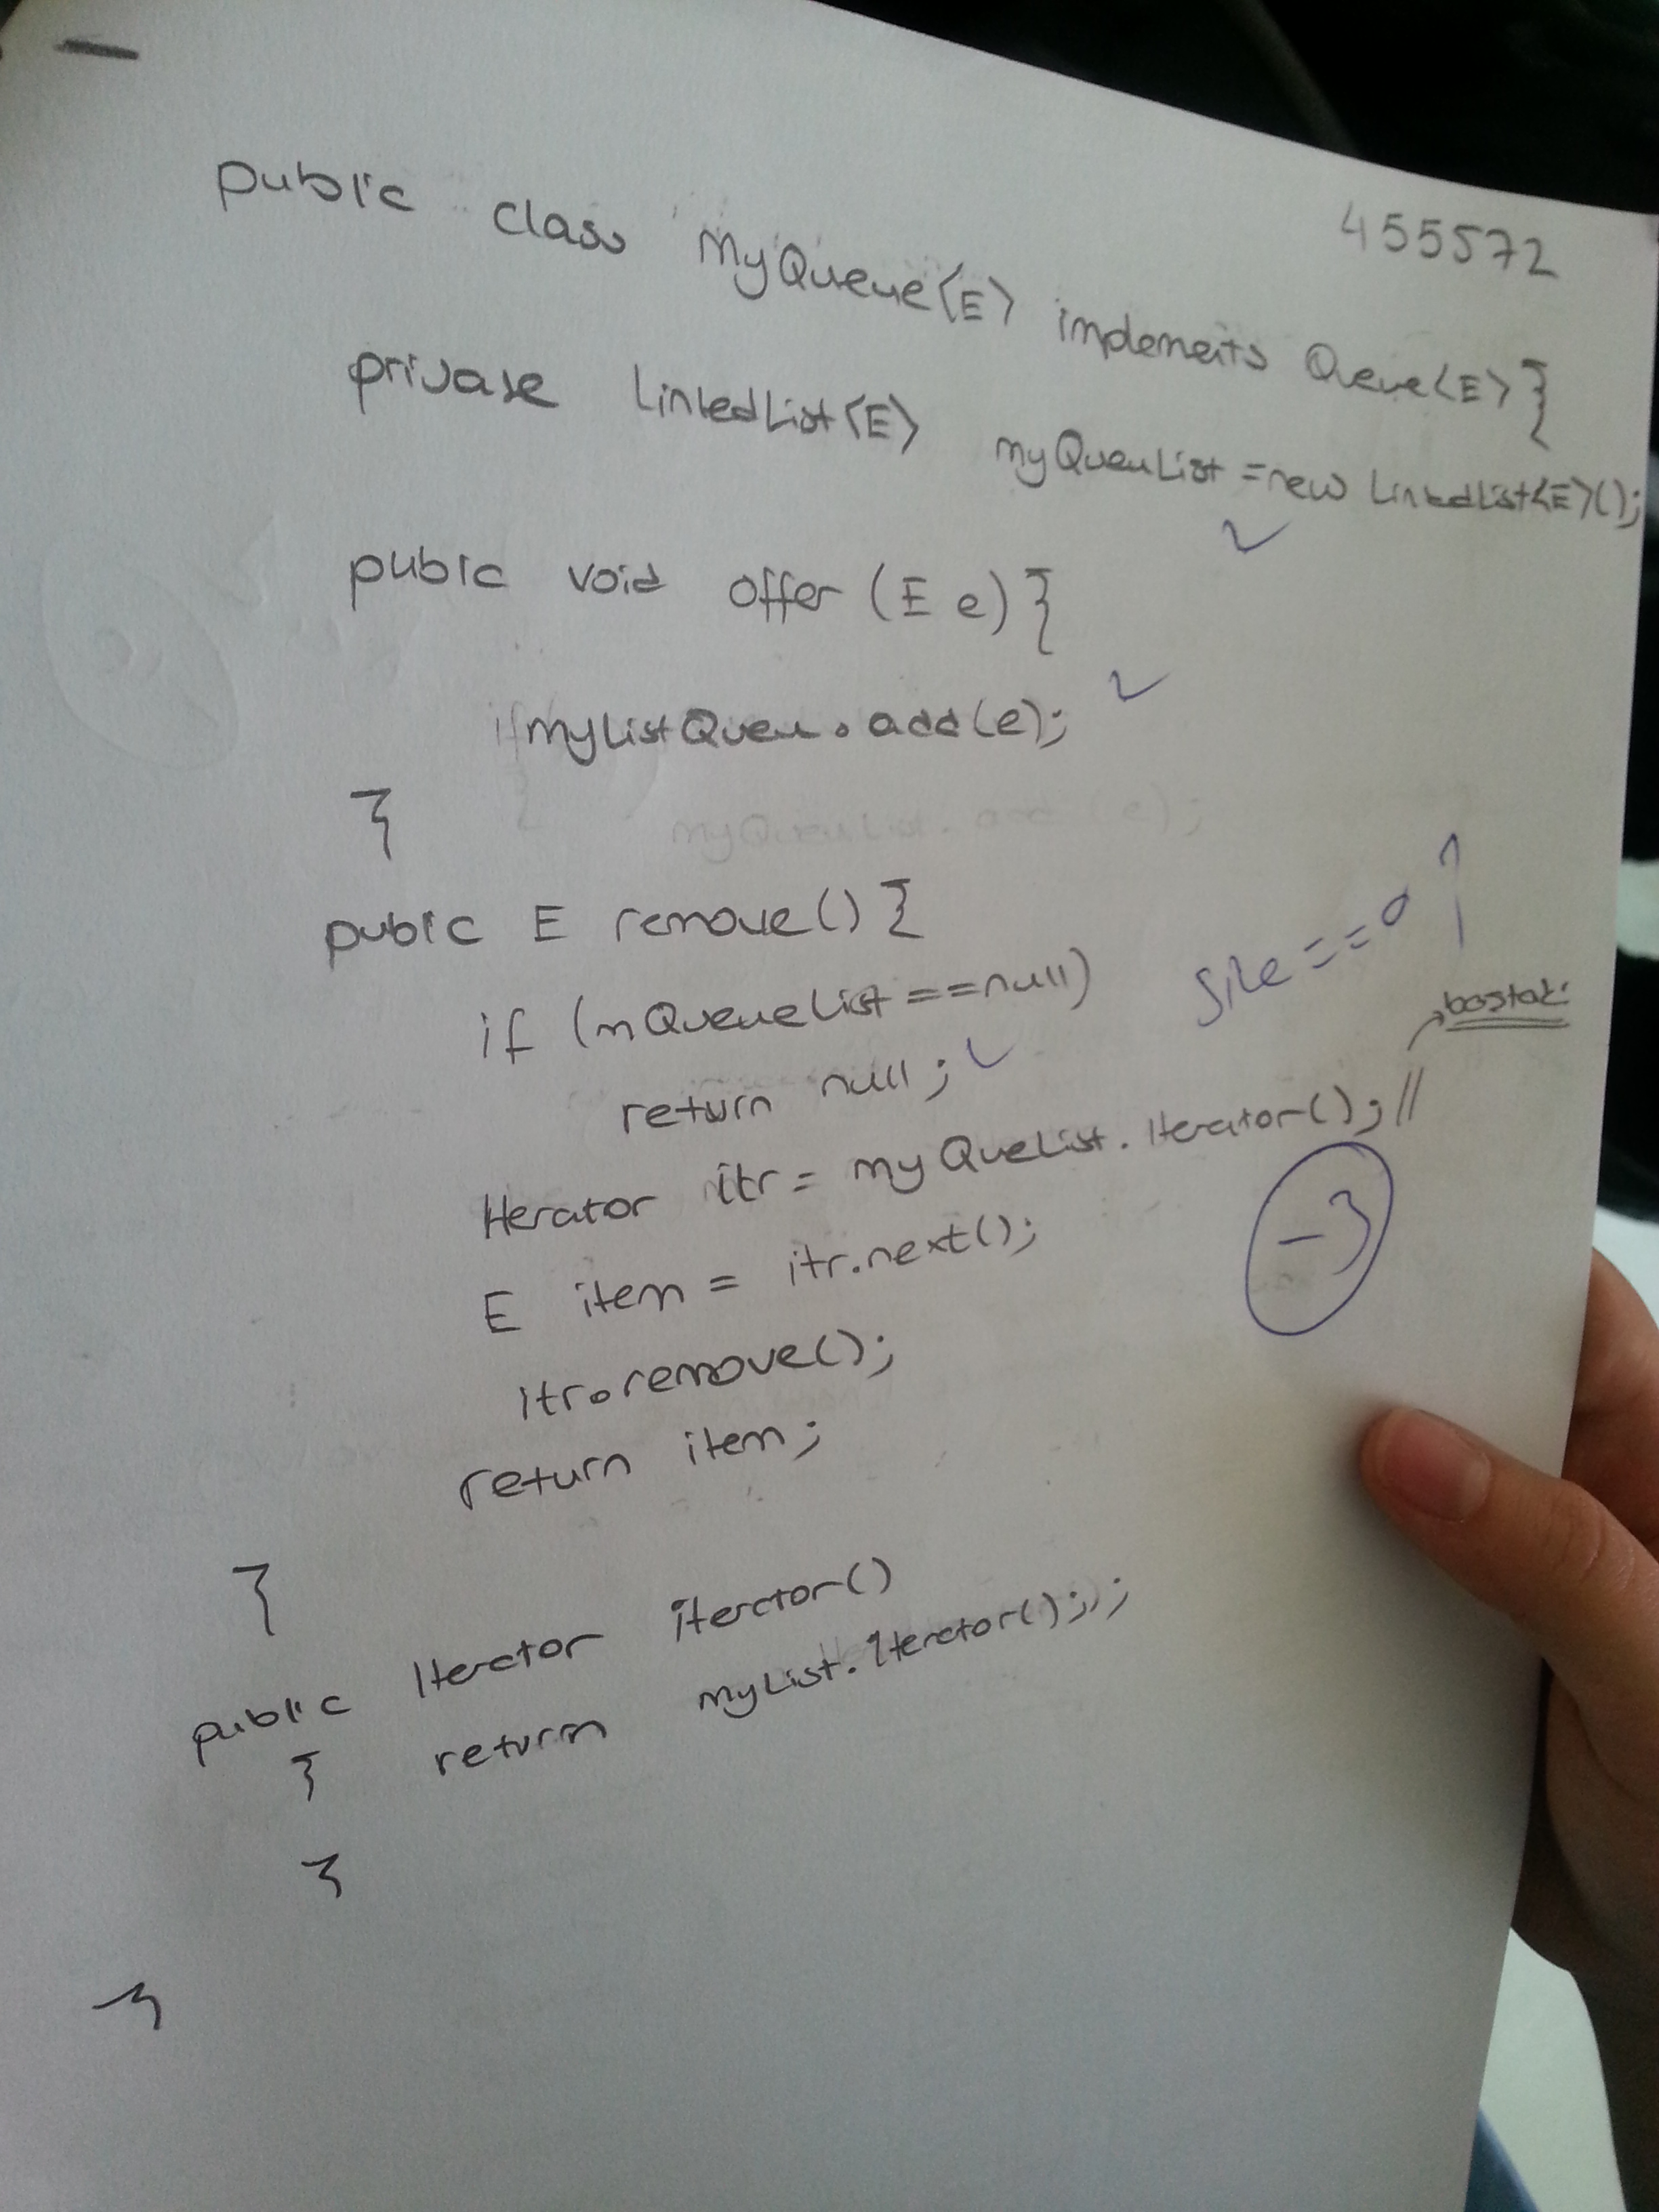 455572
public class MyQueue<E> implements Queue<E>{
private LinkedList<E> myQueuList = new LinkedList<E>();
pubic void offer (E e) {
myListQueu.add(e);
}
myQueuList.add(e);
pubic E remove() {
if (mQueueList == null) size == 0
return null;
baştaki
Iterator itr = myQueList.iterator(); //
-3
E item = itr.next();
itr.remove();
return item;
}
public Iterator iterator()
} return myList.iterator();;;
}
}